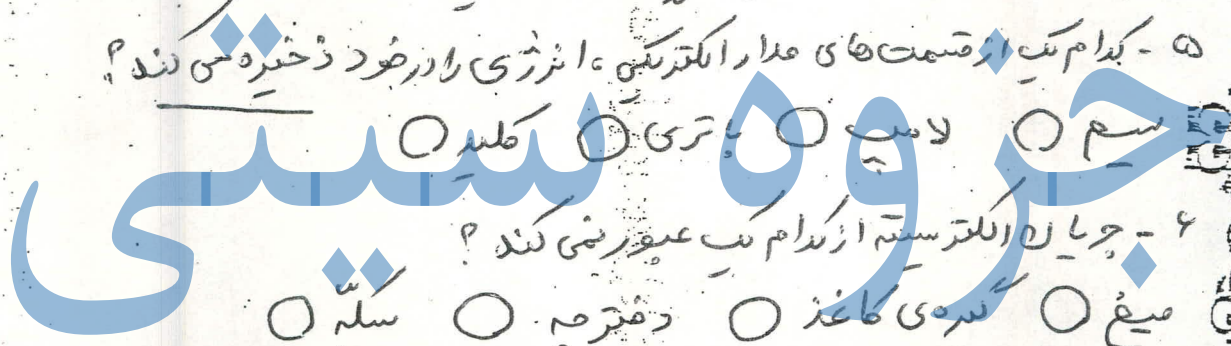 ۵ - کدام یک از قسمت های مدار الکتریکی، انرژی را در خود ذخیره می کند؟
سیم ○ لامپ ○ باتری ○ کلید ○
۶ - جریان الکتریسیته از کدام یک عبور نمی کند؟
میخ ○ گیره‌ی کاغذ ○ دفترچه ○ سکّه ○
جزوه سیتی